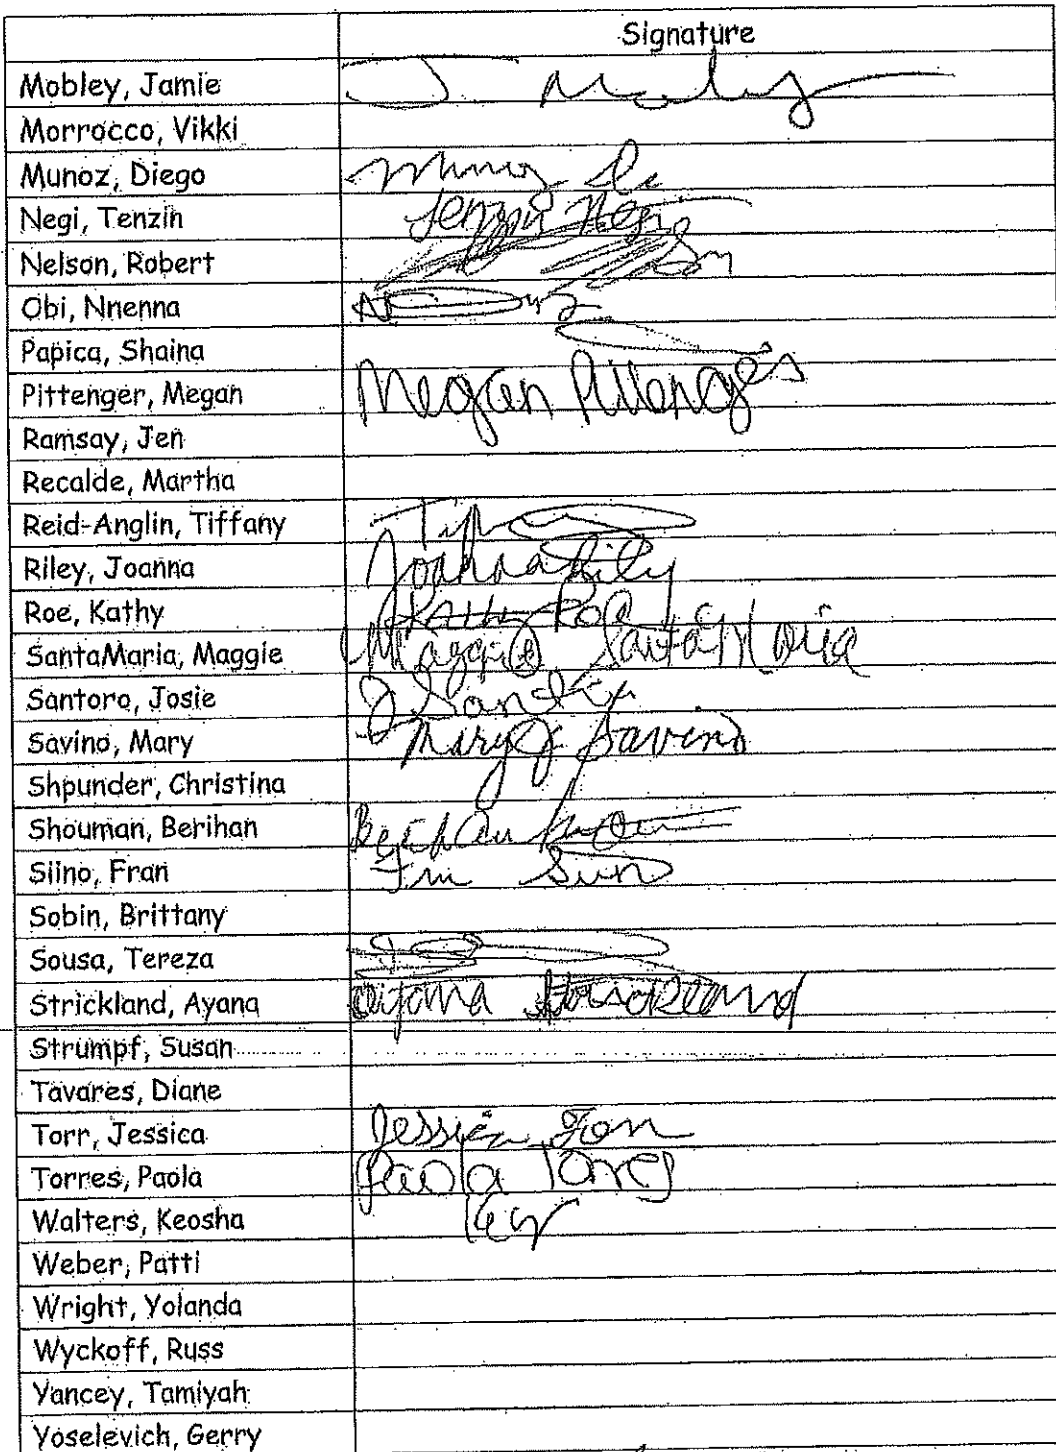 Signature
Mobley, Jamie J Mobley
Morrocco, Vikki
Munoz, Diego Munoz
Negi, Tenzin Tenzin Negi
Nelson, Robert
Obi, Nnenna
Papica, Shaina
Pittenger, Megan Megan Pittenger
Ramsay, Jen
Recalde, Martha
Reid-Anglin, Tiffany
Riley, Joanna Joanna Riley
Roe, Kathy Kathy Roe
SantaMaria, Maggie Maggie SantaMaria
Santoro, Josie J Santoro
Savino, Mary Mary J Savino
Shpunder, Christina
Shouman, Berihan Berihan
Siino, Fran
Sobin, Brittany
Sousa, Tereza
Strickland, Ayana Ayana Strickland
Strumpf, Susan
Tavares, Diane
Torr, Jessica Jessica Torr
Torres, Paola Paola Torres
Walters, Keosha
Weber, Patti
Wright, Yolanda
Wyckoff, Russ
Yancey, Tamiyah
Yoselevich, Gerry